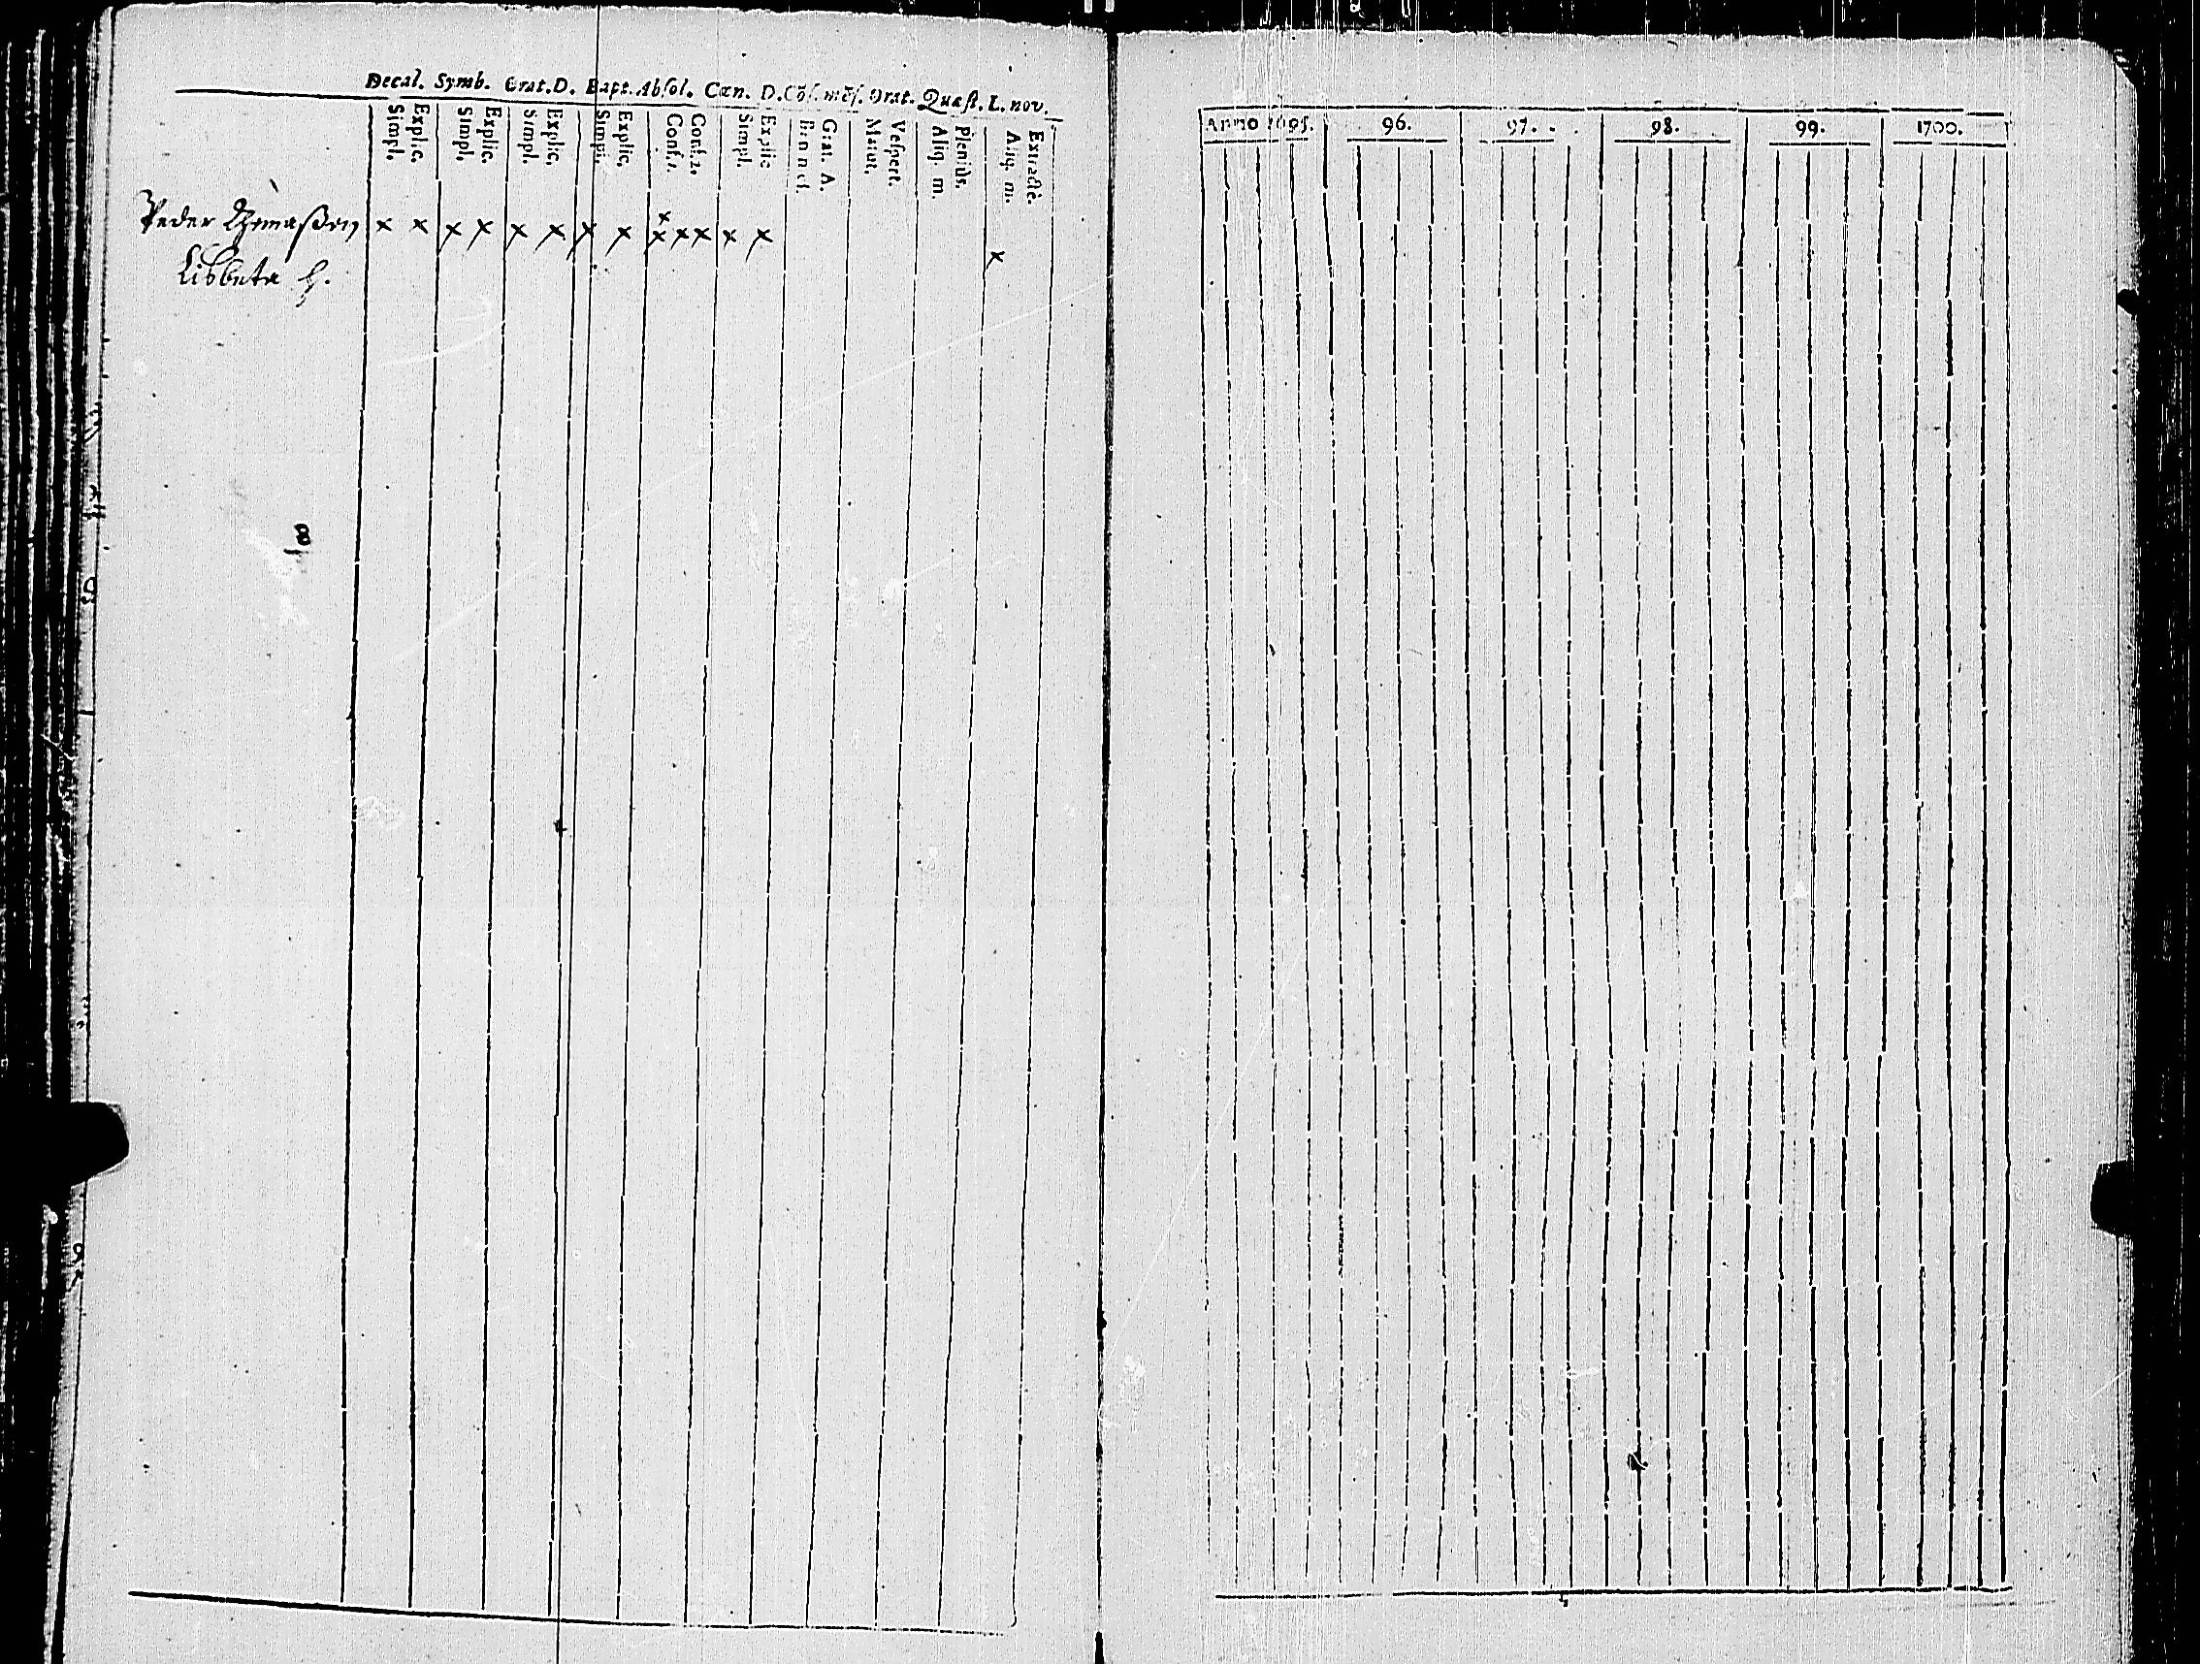 Decal. Symb. Orat. D. Bapt. Absol. Cœn. D. Cōf. mēf. Orat. Quæst. L. nov.
Simpl. Explic. Simpl. Explic. Simpl. Explic. Simpl. Explic. Conf. 1. Conf. 2. Simpl. Explic. Grat. A. Matut. Vespert. Aliq. m. Pleniùs. Aliq. m. Extractè.
Peder Thomaßon x x x x x x x x x x x x x x
Lisbeta h. x
Anno 1695. 96. 97. 98. 99. 1700.